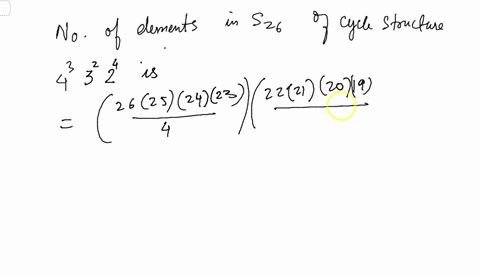 No. of elements in S₂₆ of cycle structure
4³ 3² 2⁴ is
= (26(25)(24)(23)/4)(22(21)(20)(19)